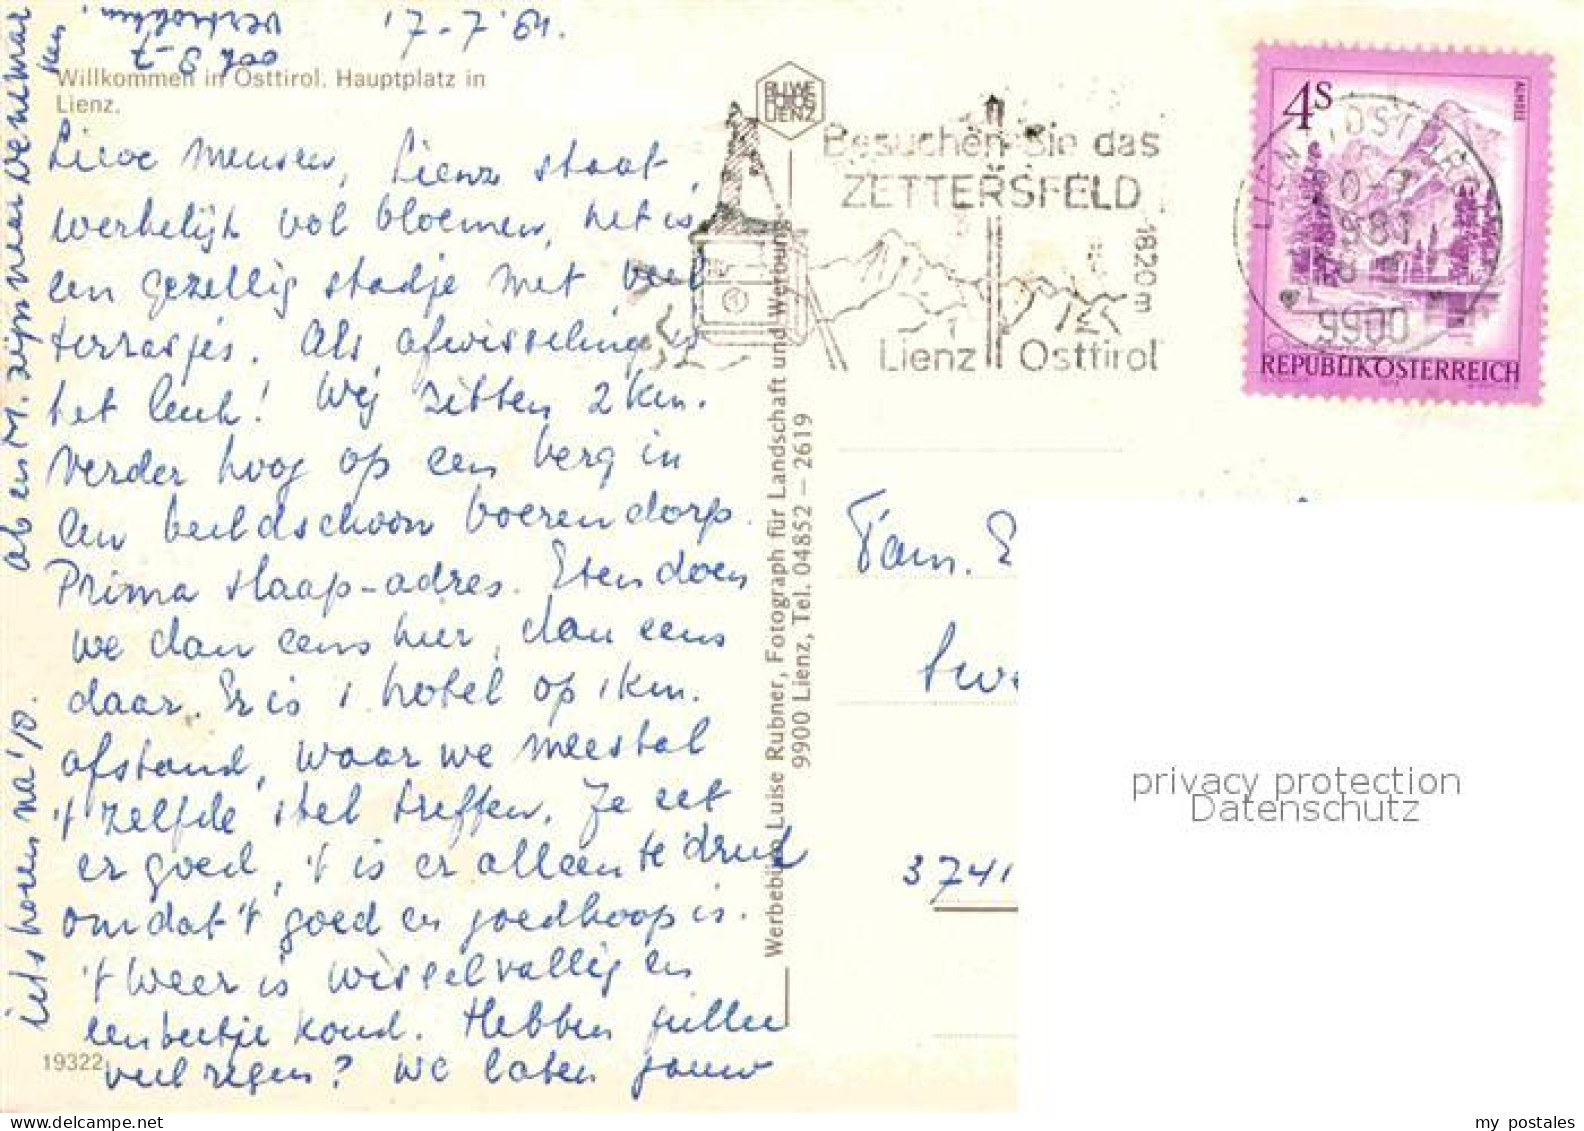 17-7.'81.
Willkommen in Osttirol. Hauptplatz in
Lienz.
Lieve mensen, Lienz staat
werkelijk vol bloemen, het is
een gezellig stadje met veel
terrasjes. Als afwisseling is
het leuk! Wij zitten 2 km.
verder hoog op een berg in
een beeldschoon boerendorp.
Prima slaap-adres. Eten doen
we dan eens hier, dan eens
daar. Er is 1 hotel op 1 km.
afstand, waar we meestal
't zelfde stel treffen. Je eet
er goed, 't is er alleen te druk
omdat 't goed en goedkoop is.
't Weer is wisselvallig en
een beetje koud. Hebben jullie
veel regen? We laten jouw
19322
iets horen na '10.
ab en M. zijn naar Denemar
ken
vertrokken,
ook 9-7
BUWE
FOTOS
LIENZ
Werbebüro Luise Rubner, Fotograph für Landschaft und Werbung
9900 Lienz, Tel. 04852 – 2619
Besuchen Sie das
ZETTERSFELD
1820 m
Lienz Osttirol
4S
ALMSEE
REPUBLIK ÖSTERREICH
LIENZ OSTTIROL
9900
Fam. E
twe
3741
privacy protection
Datenschutz
my postales